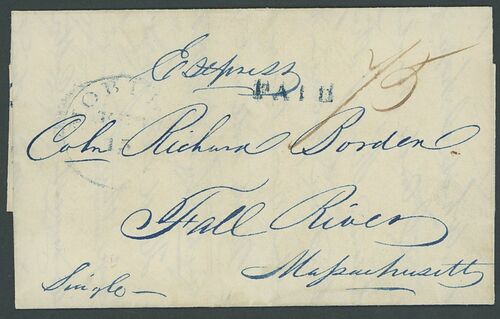 Express
PAID
75
Coln Richard Borden
Fall River
Massachusetts
Single